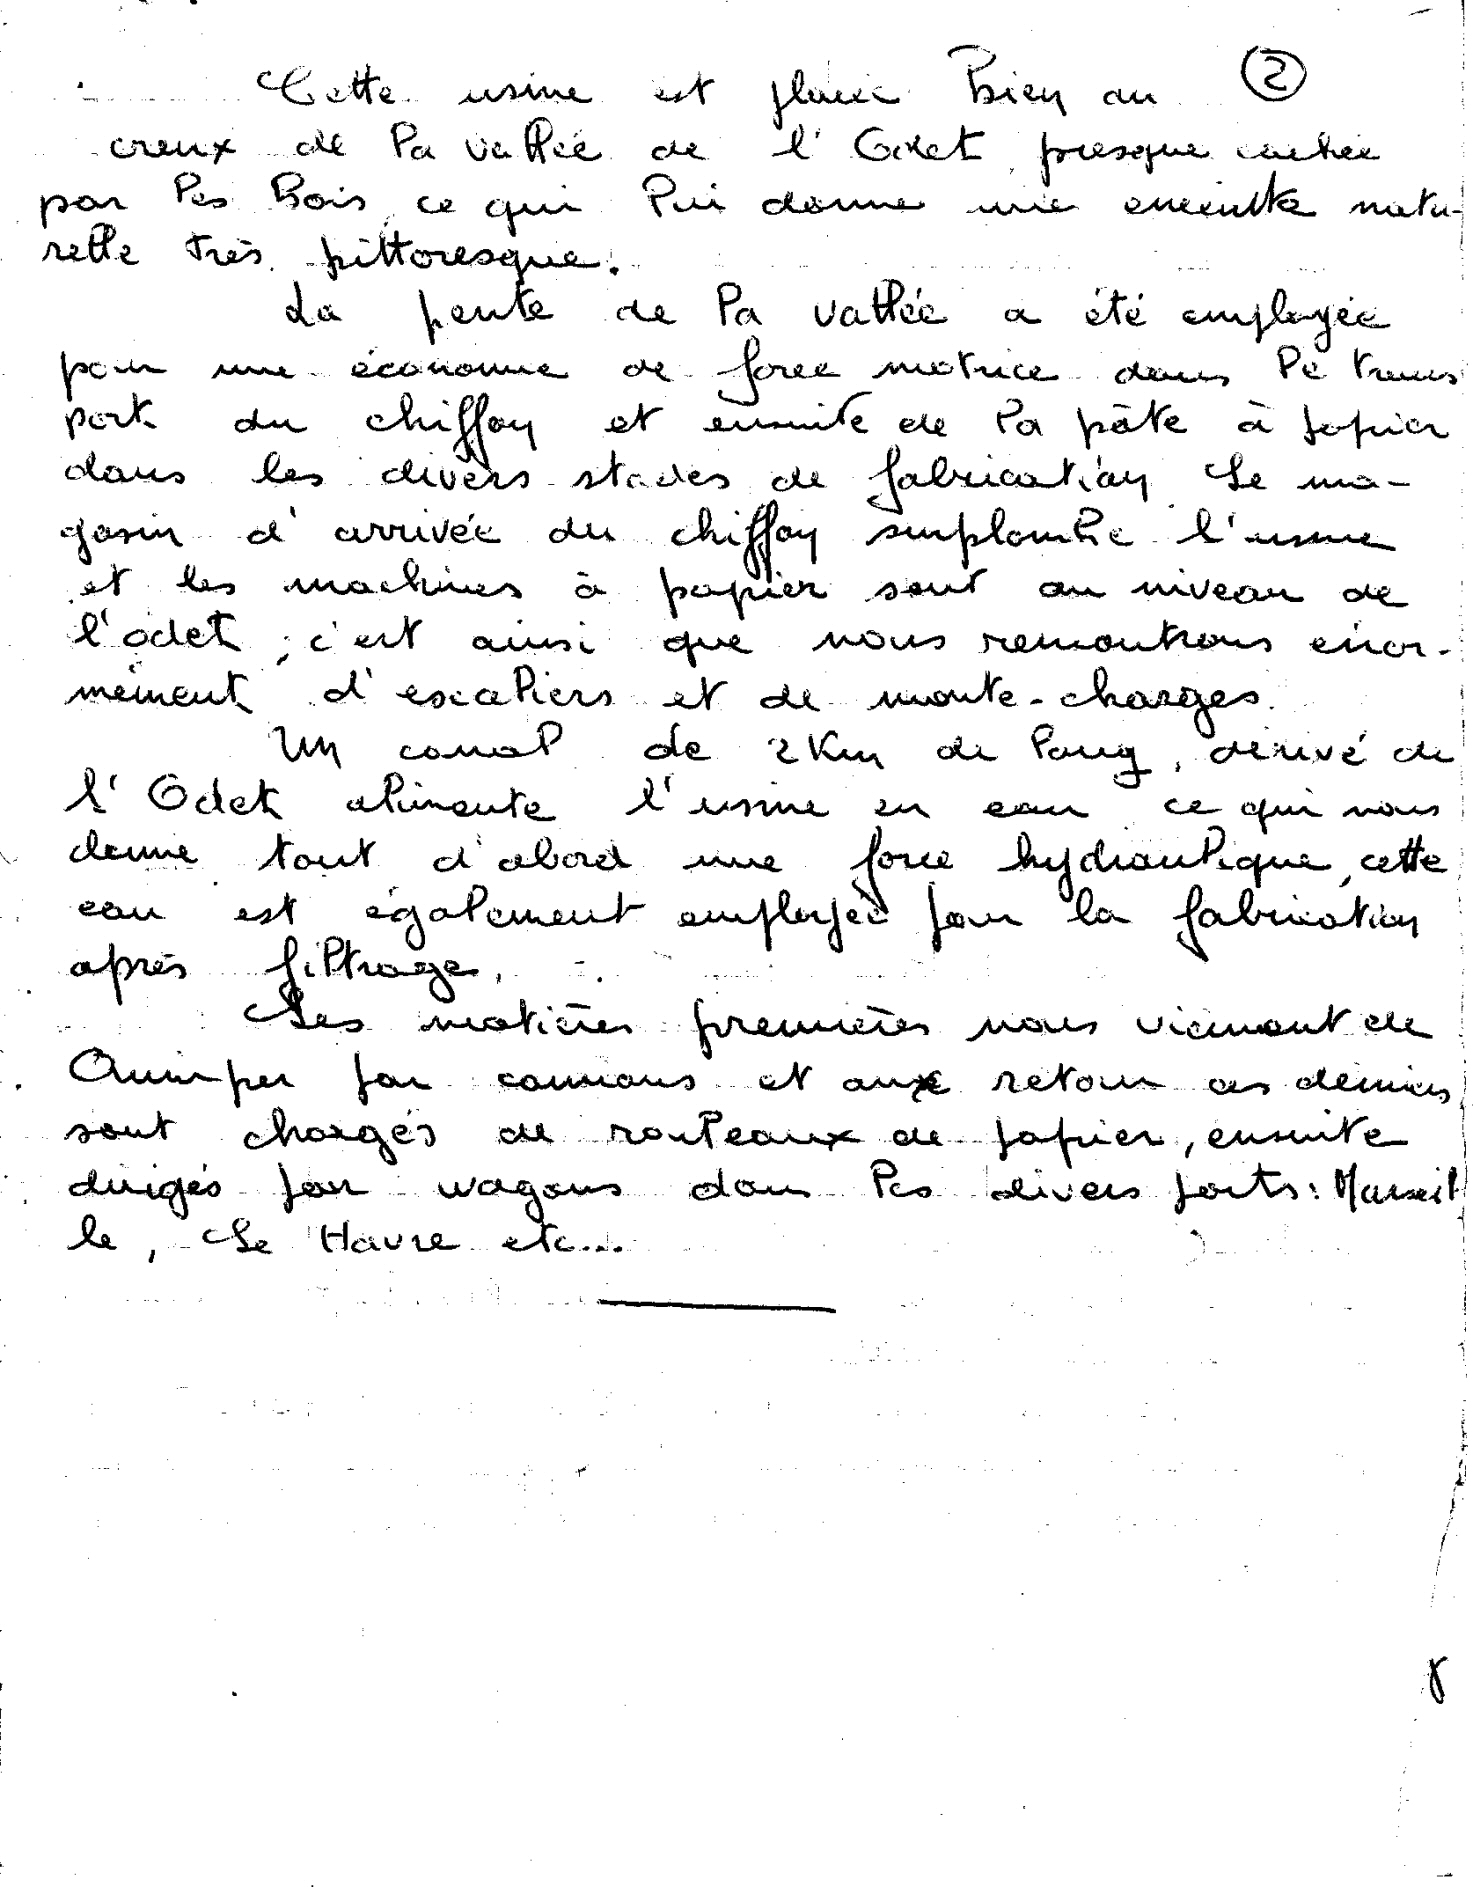 Cette usine est placée bien au ②
creux de la vallée de l'Odet, presque cachée
par les bois, ce qui lui donne une enceinte natu-
relle très pittoresque.
La pente de la vallée a été employée
pour une économie de force motrice dans le trans
port du chiffon et ensuite de la pâte à papier
dans les divers stades de fabrication. Le ma-
gasin d'arrivée du chiffon surplombe l'usine
et les machines à papier sont au niveau de
l'odet ; c'est ainsi que nous remontrons énor-
mément d'escaliers et de monte-charges.
Un canal de 2 Km de long, dérivé de
l'Odet alimente l'usine en eau ce qui nous
donne tout d'abord une force hydraulique, cette
eau est également employée pour la fabrication
après filtrage.
Les matières premières nous viennent de
Quimper par camions et aux retour ces derniers
sont chargés de rouleaux de papier, ensuite
dirigés par wagons dans les divers ports : Marseil
le, Le Havre etc...